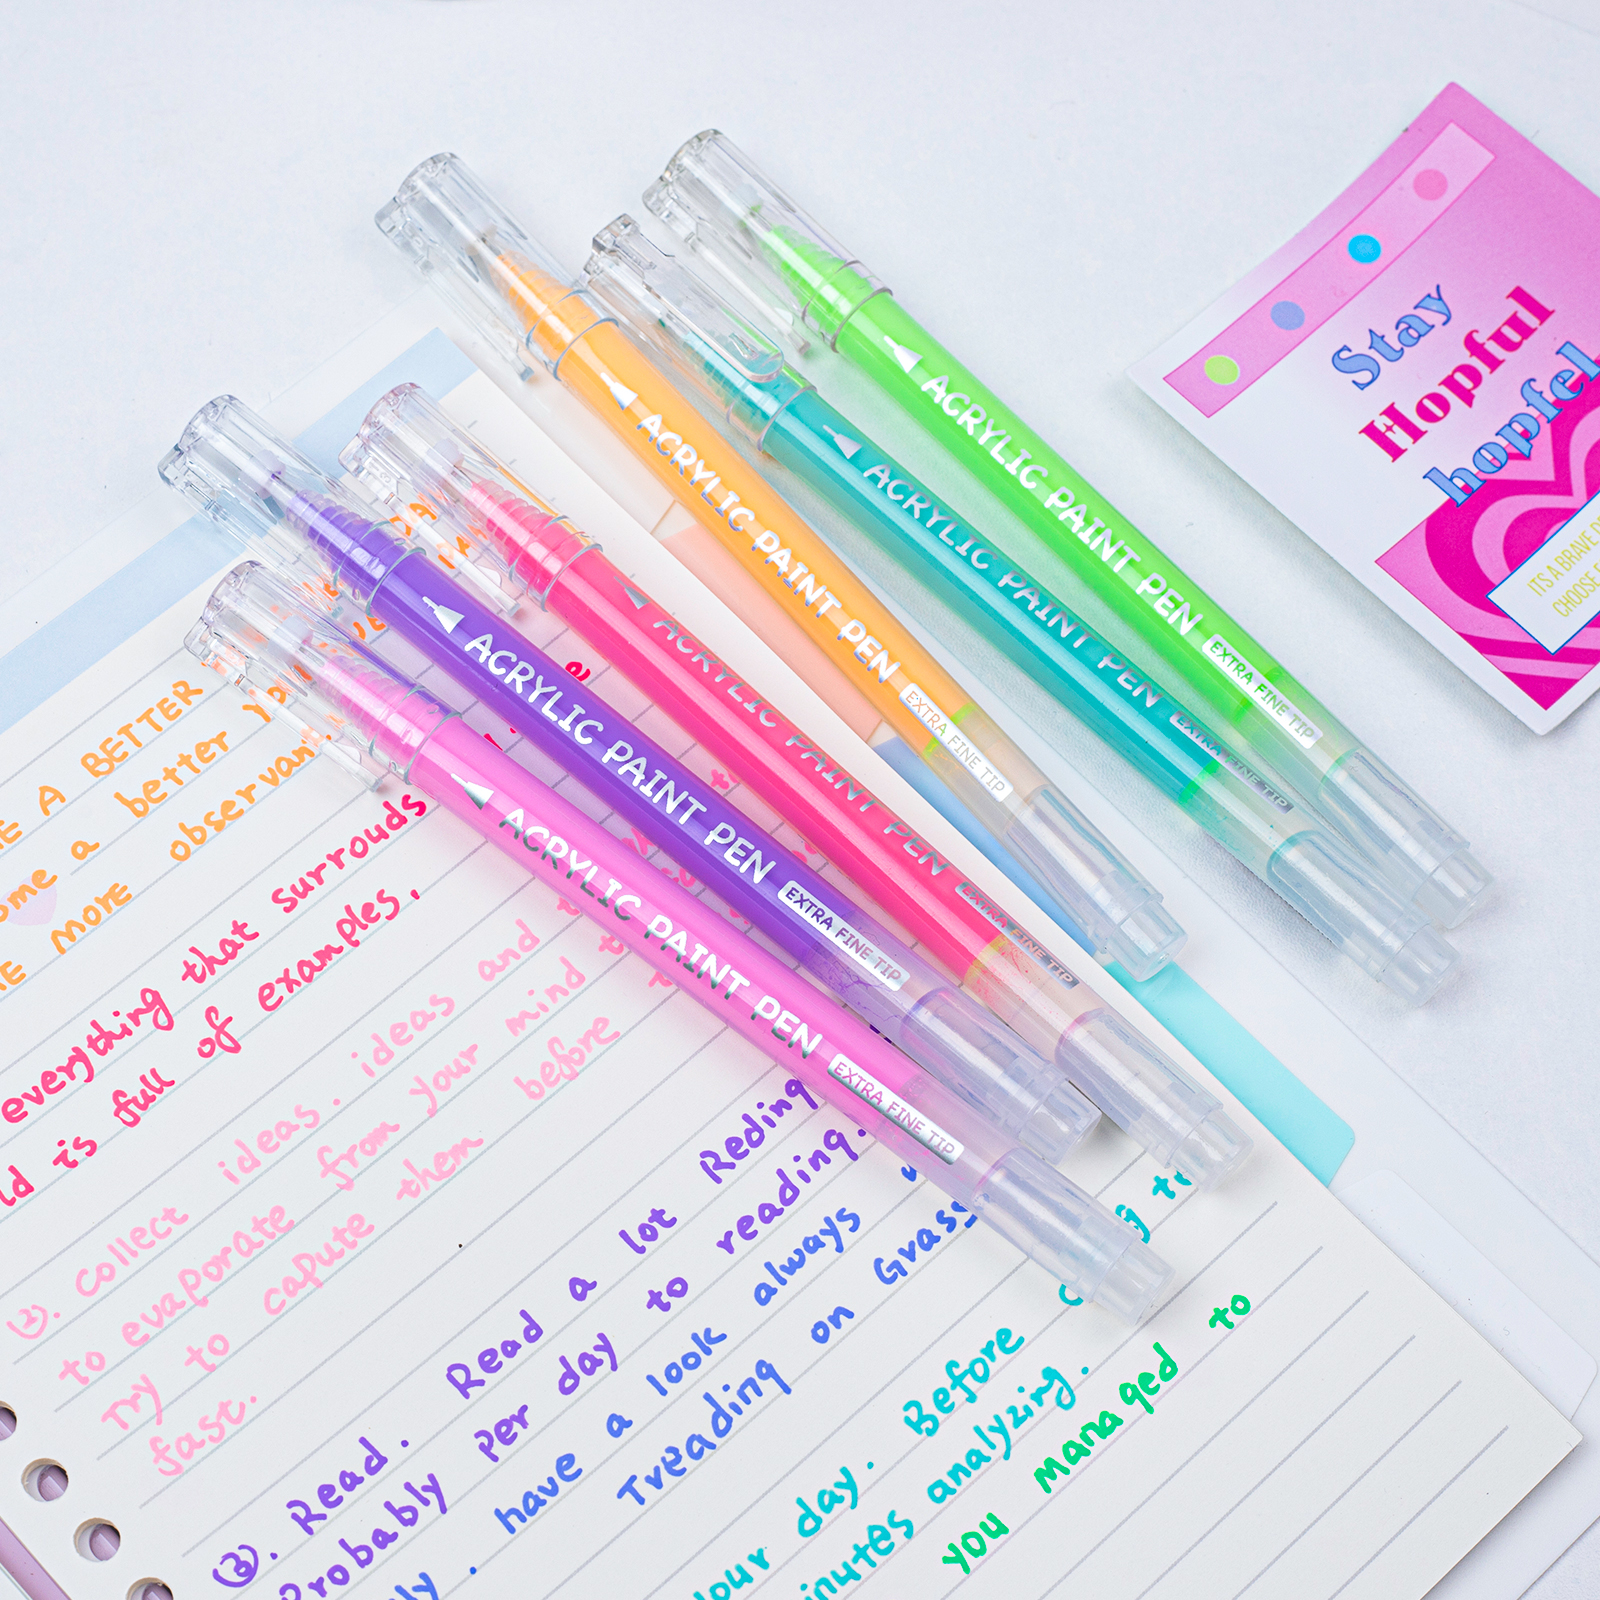 ACRYLIC PAINT PEN EXTRA FINE TIP
ACRYLIC PAINT PEN EXTRA FINE TIP
ACRYLIC PAINT PEN EXTRA FINE TIP
ACRYLIC PAINT PEN EXTRA FINE TIP
ACRYLIC PAINT PEN EXTRA FINE TIP
ACRYLIC PAINT PEN EXTRA FINE TIP
Stay
Hopful
hopfel
IT'S A BRAVE
CHOOSE
A BETTER
a better
MORE observant
everything that surrouds
is full of examples.
2. collect ideas. ideas and
to evaporate from your mind
Try to capute them before
fast.
3. Read. Read a lot Reding
Probably per day to reading.
have a look always
Treading on Grass
day. Before
analyzing.
you managed to